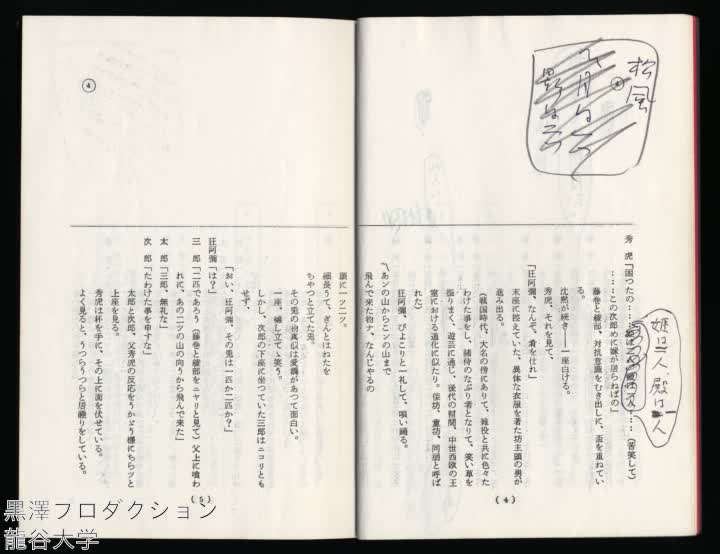 松風
④
秀虎「困つたの……
姫は二人、殿は一人
……（苦笑して）
……この次郎めに嫁が居らねばの」
藤巻と綾部、対抗意識をむき出しに、盃を重ねてい
る。
沈黙が続き——一座白ける。
秀虎、それを見て、
「狂阿彌、なんぞ、肴を仕れ」
末座に控えていた、異体な衣服を著た坊主頭の男が
進み出る。
（戦国時代、大名の傍にありて、雑役と共に色々た
わけた事をし、諸侍のなぶり者となりて、笑い草を
強りまく、遊芸に通じ、後代の幇間、中世西欧の王
室における道化に似たり。伽坊、童坊、同朋と呼ば
れた）
狂阿彌、ぴょこりと一礼して、唄い踊る。
〽あンの山からこンの山まで
飛んで来た物ナ、なんじゃるの
（4）
頭に一ツ二ツ。
細長うて、ぎんとはねたを
ちゃつと立てた兎。
その兎の物真似は愛嬌があつて面白い。
一座、囃し立てゝ笑う。
しかし、次郎の下座に坐つていた三郎はニコリとも
せず、
「おい、狂阿彌、その兎は一匹か二匹か？」
狂阿彌「は？」
三郎「二匹であろう（藤巻と綾部をニヤリと見て）父上に喰わ
れに、あの二ツの山の向うから飛んで来た」
太郎「三郎、無礼な」
次郎「たわけた事を申すな」
太郎と次郎、父秀虎の反応をうかゞう様にちらッと
上座を見る。
秀虎は杯を手に、その上に面を伏せている。
よく見ると、うつらうつらと居睡りをしている。
（5）
④
黒澤プロダクション
龍谷大学